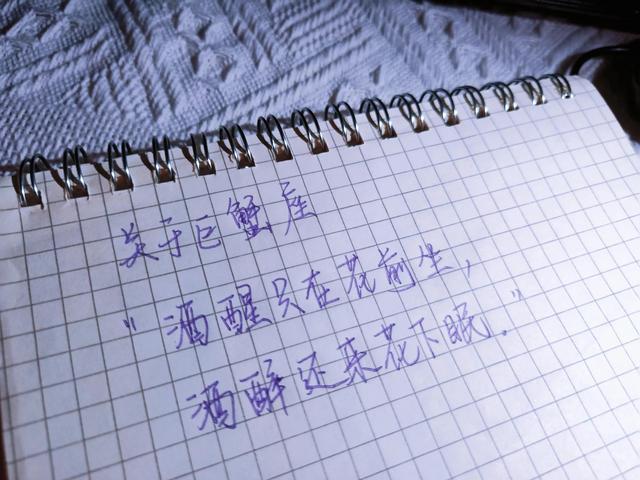 关于巨蟹座
"酒醒只在花前生,
酒醉还来花下眠."